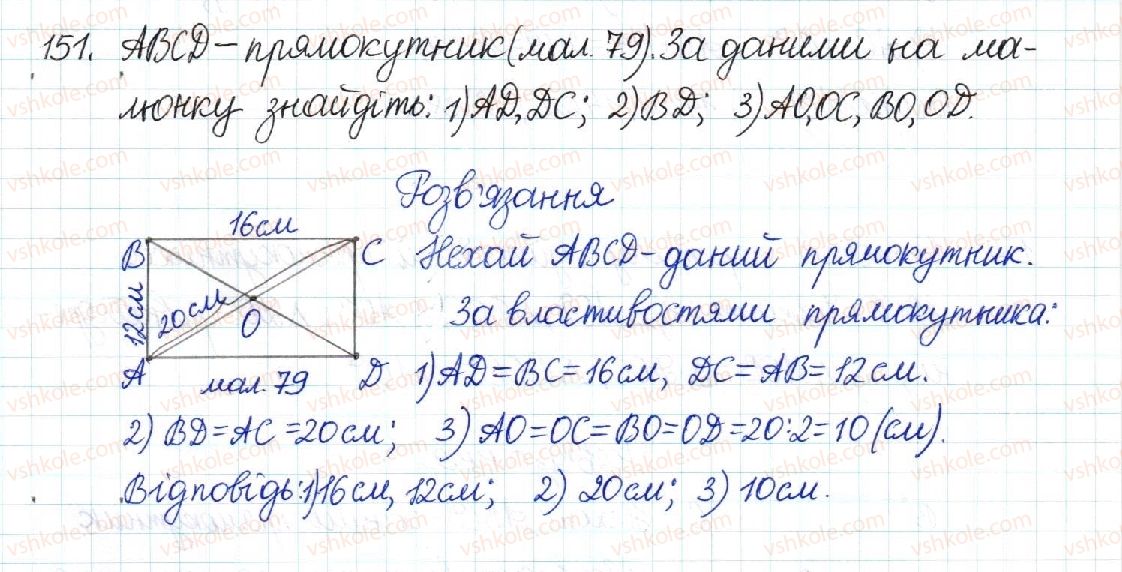 151. ABCD – прямокутник (мал. 79). За даними на ма-
люнку знайдіть: 1) AD, DC; 2) BD; 3) AO, OC, BO, OD.
Розв'язання
16 см
B
C
12 см
20 см
O
A
D
мал. 79
Нехай ABCD – даний прямокутник.
За властивостями прямокутника:
1) AD = BC = 16 см, DC = AB = 12 см.
2) BD = AC = 20 см; 3) AO = OC = BO = OD = 20:2 = 10 (см).
Відповідь: 1) 16 см, 12 см; 2) 20 см; 3) 10 см.
vshkole.com